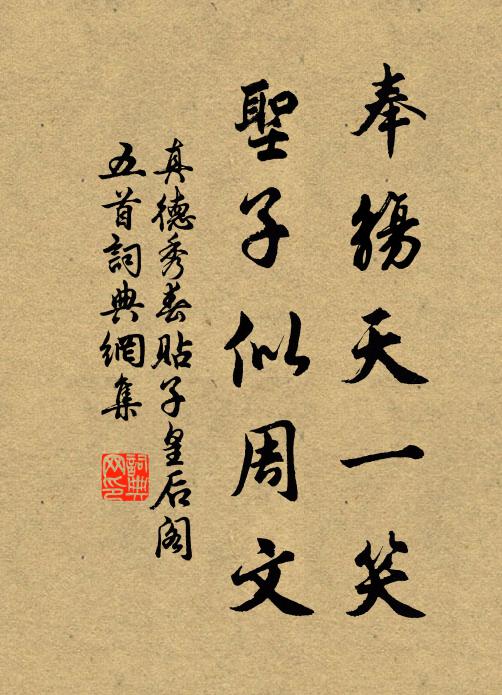 奉觴天一笑
聖子似周文
真德秀春貼子皇后阁
五首詞典網集
詞典网印